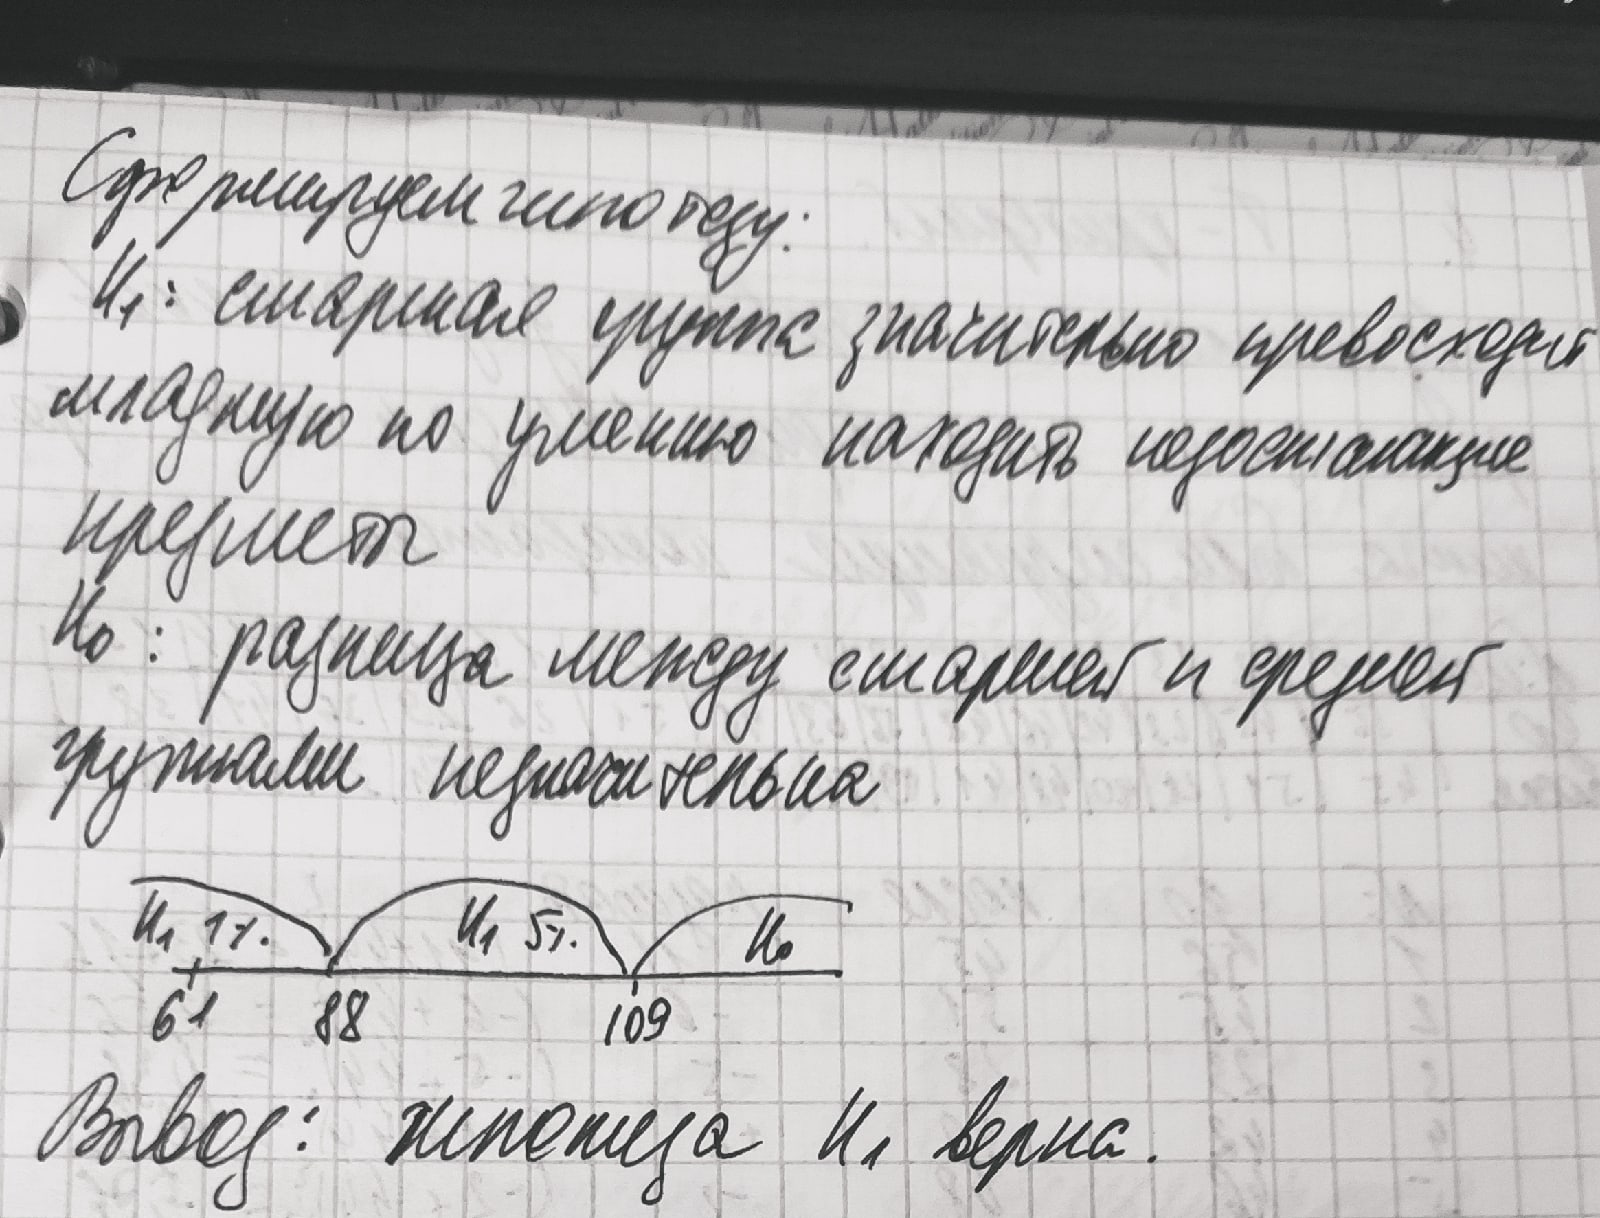 Сформируем гипотезу:
H₁: старшая группа значительно превосходит
младшую по умению находить недостающие
предметы
H₀: разница между старшей и средней
группами незначительна
H₁ 1%. H₁ 5%. H₀
61 88 109
Вывод: гипотеза H₁ верна.